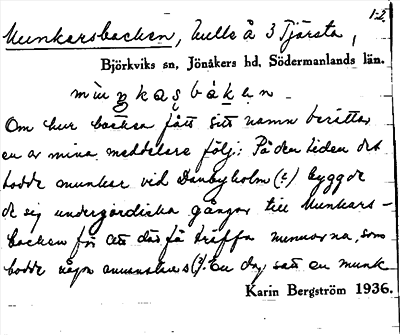 1-2.
Munkarsbacken, kulle å 3 Tjärsta,
Björkviks sn, Jönåkers hd, Södermanlands län.
Om hur backen fått sitt namn berättar
en av mina meddelare följ: På den tiden det
bodde munkar vid Danbyholm (:) byggde
de sig underjordiska gångar till Munkars-
backen för att där få träffa nunnorna, som
bodde någon annanstans (?). En dag satt en munk
Karin Bergström 1936.